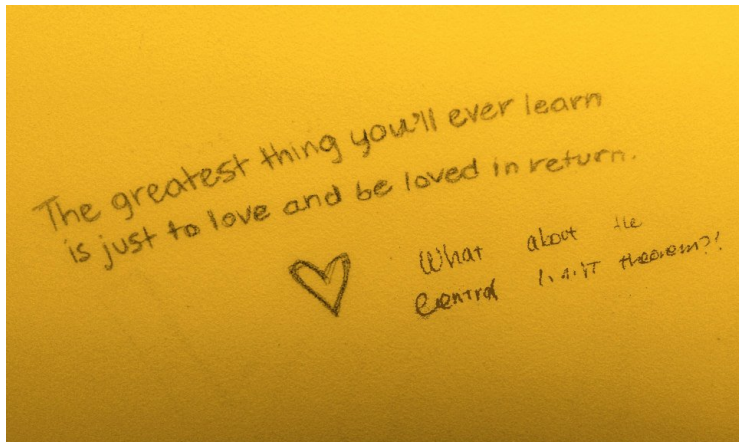 The greatest thing you'll ever learn
is just to love and be loved in return.
What about the
Central limit theorem?!